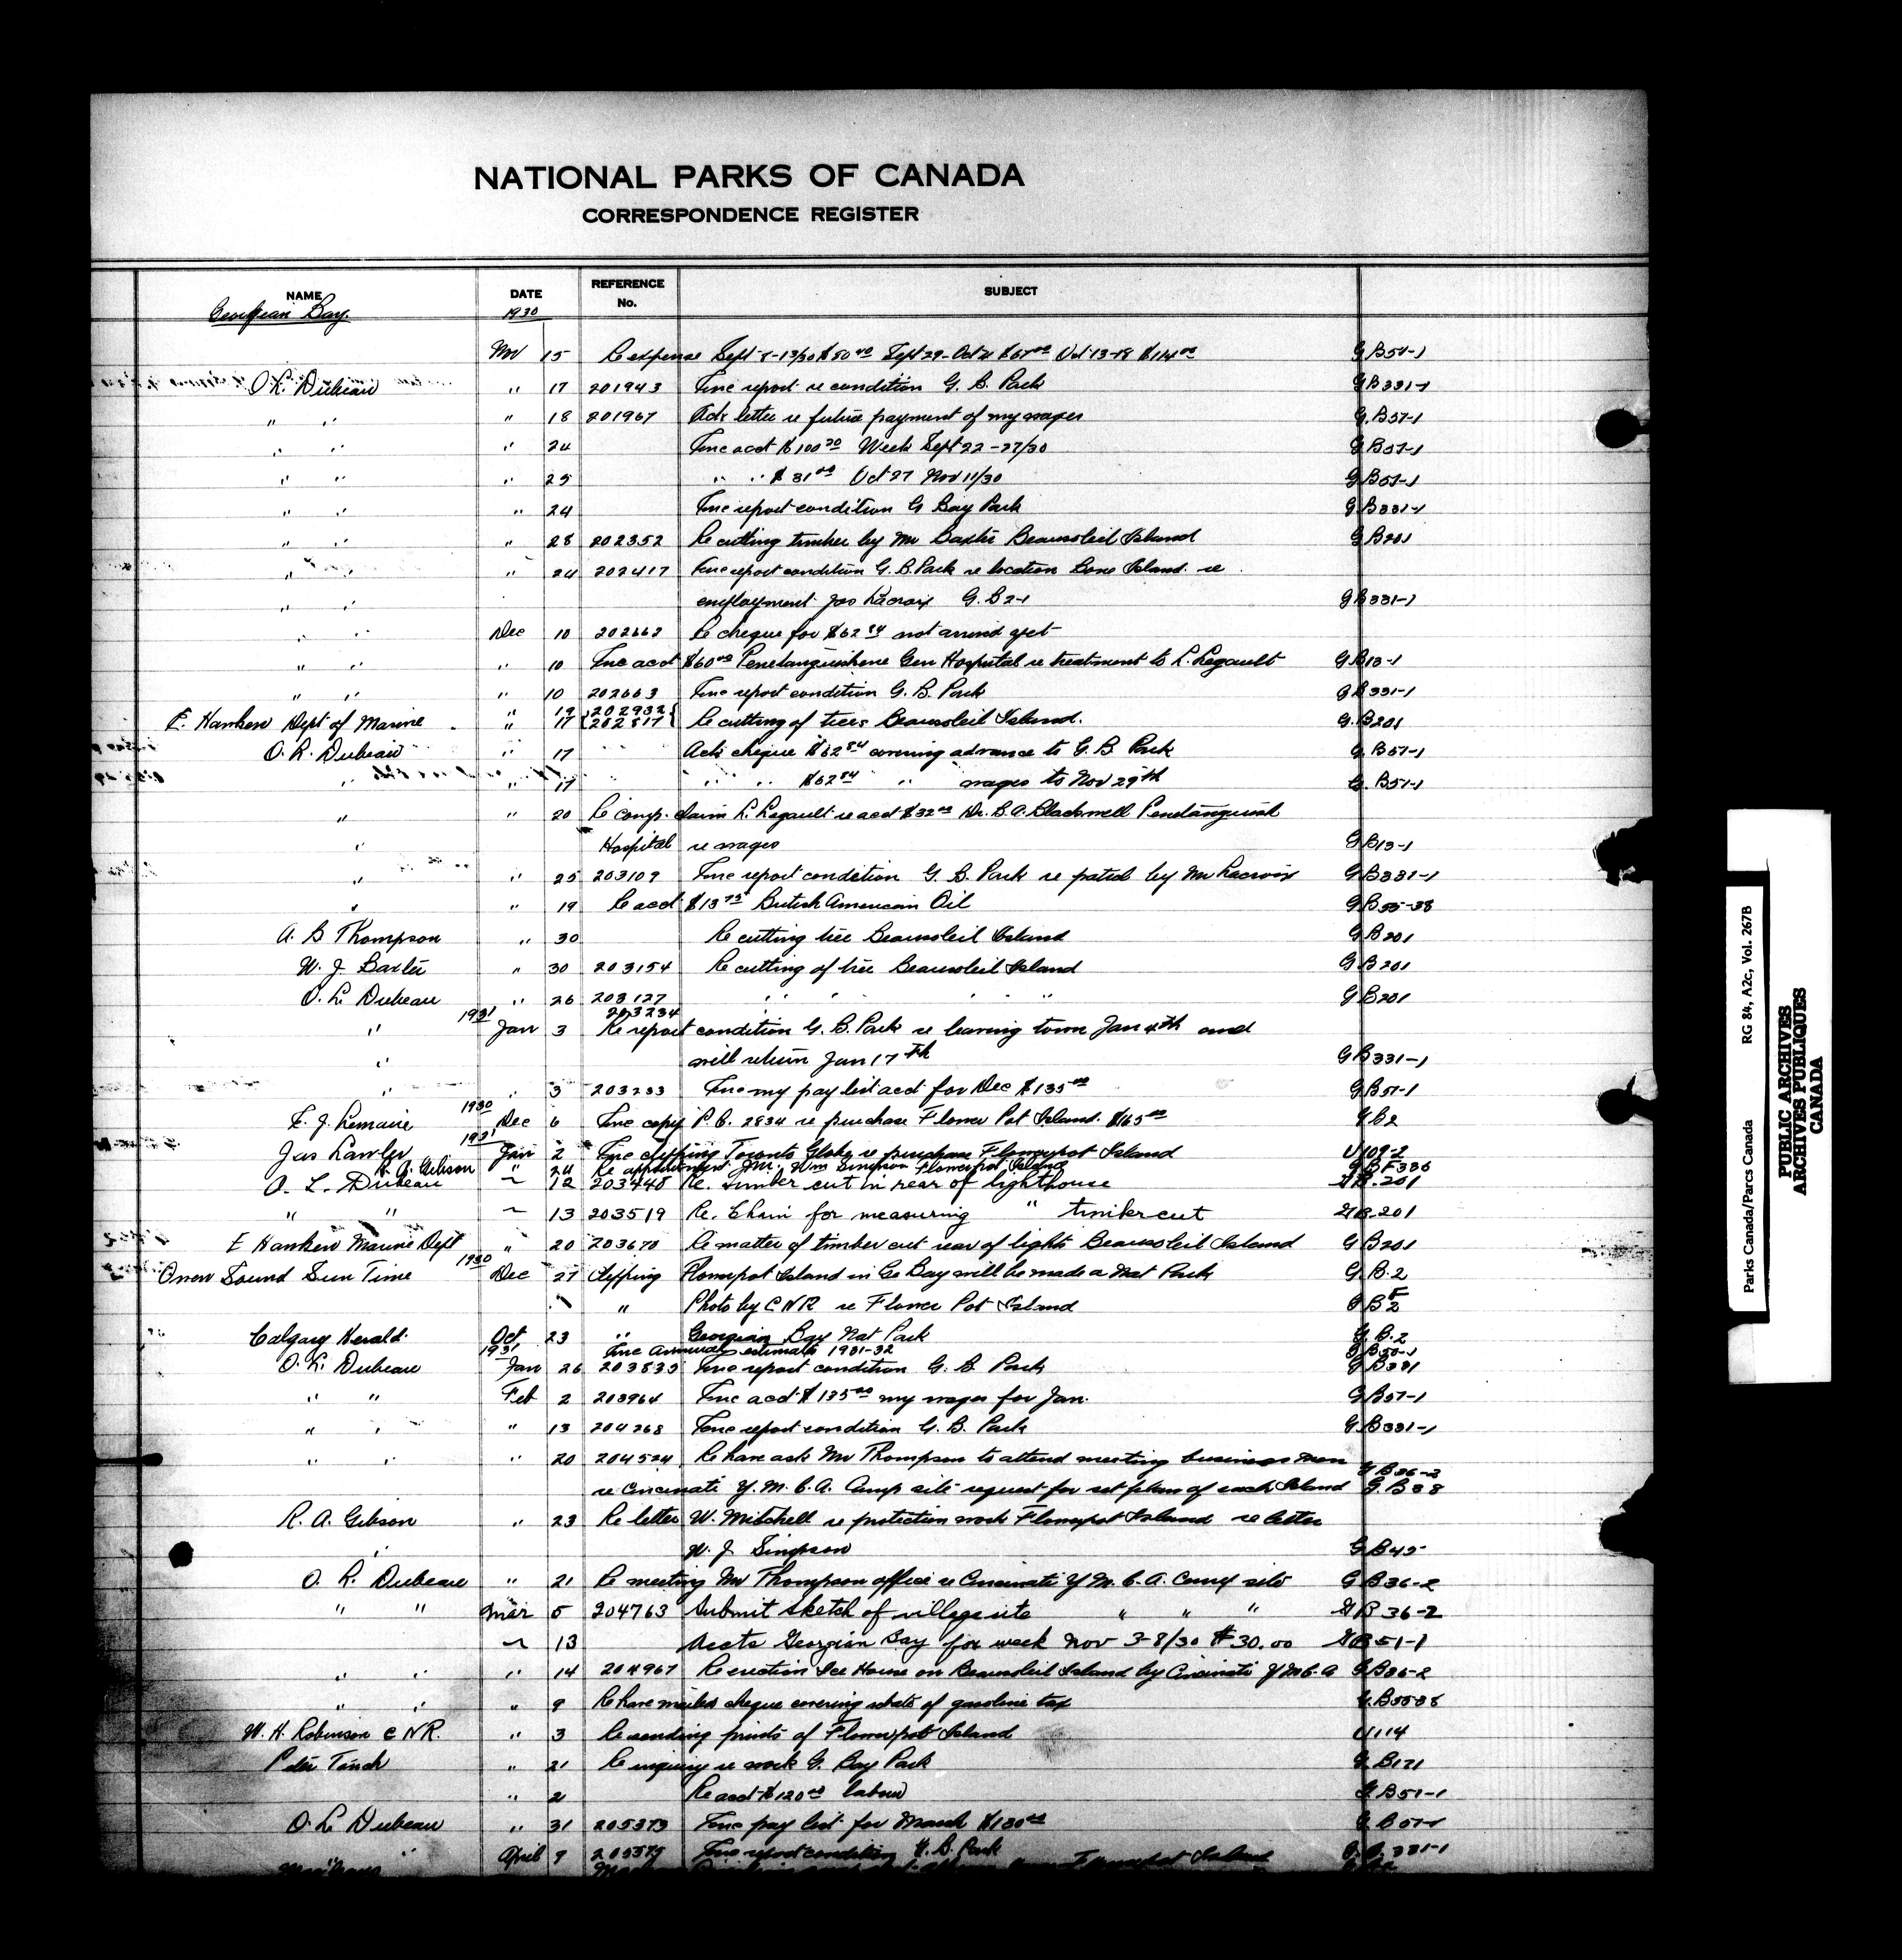 NATIONAL PARKS OF CANADA
CORRESPONDENCE REGISTER
NAME DATE REFERENCE No. SUBJECT
Georgian Bay. 1930
Nov 15 Re expense Sept 8-13/30 $50.40 Sept 29-Oct 4 $67.00 Oct 13-18 $114.00 G.B57-1
O.L. Dubeau " 17 201943 Enc report re condition G.B. Park G.B331-1
" " " 18 201967 Ack letter re future payment of my wages G.B57-1
" " " 24 Enc acct $100.20 Week Sept 22-27/30 G.B57-1
" " " 25 " " $81.00 Oct 27 Nov 11/30 G.B57-1
" " " 24 Enc report condition G Bay Park G.B331-1
" " " 28 202352 Re cutting timber by Mr Baxter Beausoleil Island G.B201
" " " 24 202417 Enc report condition G.B. Park re location Bone Island re
" " employment Jas Lacroix G.B2-1 G.B331-1
" " Dec 10 202662 Re cheque for $62.84 not arrived yet
" " " 10 Enc acct $60.00 Penetanguishene Gen Hospital re treatment to L. Legault G.B13-1
" " " 10 202663 Enc report condition G.B. Park G.B331-1
" 19 202932
E. Hawken Dept of Marine " 17 202817 Re cutting of trees Beausoleil Island. G.B201
O.L. Dubeau " 17 Ack cheque $62.84 covering advance to G.B. Park G.B57-1
" " 17 " " $62.84 " wages to Nov 29th G.B57-1
" " 20 Re comp. claim L. Legault re acct $32.00 Dr. B.A. Blackwell Penetanguish
" Hospital re wages G.B13-1
" " 25 203109 Enc report condition G.B. Park re patrol by Mr Lacroix G.B331-1
" " 19 Re acct $13.75 British American Oil G.B55-38
A.B Thompson " 30 Re cutting tree Beausoleil Island G.B201
W.J. Baxter " 30 203154 Re cutting of tree Beausoleil Island G.B201
O.L. Dubeau " 26 203127 " " " " " G.B201
203234
" 1931 Jan 3 Re report condition G.B. Park re leaving town Jan 4th and
" will return Jan 17th G.B331-1
" " 3 203233 Enc my pay list acct for Dec $135.00 G.B57-1
F.J. Lemaire 1930 Dec 6 Enc copy P.C. 2834 re purchase Flower Pot Island. $165.00 G.B2
Jas Lawler 1931 Jan 2 Enc clipping Toronto Globe re purchase Flowerpot Island U109-2
R.A. Gibson " 24 Re appointment Mr. Wm Simpson Flowerpot Island G.BF336
O.L. Dubeau " 12 203448 Re. timber cut in rear of lighthouse G.B.201
" " " 13 203519 Re. Chain for measuring " timber cut G.B.201
E Hawken Marine Dept " 20 203670 Re matter of timber cut rear of lights Beausoleil Island G.B201
Owen Sound Sun Time 1930 Dec 27 Clipping Flowerpot Island in Ge Bay will be made a Nat Park G.B.2
" " Photo by CNR re Flower Pot Island G.B F2
Calgary Herald. Oct 23 " Georgian Bay Nat Park G.B.2
1931 Enc annual estimate 1931-32 G.B50-1
O.L. Dubeau Jan 26 203833 Enc report condition G.B. Park G.B331
" " Feb 2 203964 Enc acct $135.00 my wages for Jan. G.B57-1
" " " 13 204268 Enc report condition G.B. Park G.B331-1
" " " 20 204524 Re have ask Mr Thompson to attend meeting business men G.B36-2
re Cincinati Y.M.C.A. Camp site request for set plan of each Island G.B38
R.A. Gibson " 23 Re letter W. Mitchell re protection work Flowerpot Island re letter
" W.J. Simpson G.B45
O.L. Dubeau " 21 Re meeting Mr Thompson office re Cincinati Y.M.C.A. Camp site G.B36-2
" " Mar 5 204763 Submit sketch of village site " " " G.B 36-2
" 13 Accts Georgian Bay for week Nov 3-8/30 $30.00 G.B51-1
" " " 14 204967 Re erection Ice House on Beausoleil Island by Cincinati YMCA G.B36-2
" " " 9 Re have mailed cheque covering rebate of gasoline tax G.B5538
W.H. Robinson CNR. " 3 Re sending prints of Flowerpot Island U114
Peter Tinch " 21 Re inquiry re work G. Bay Park G.B171
" 2 Re acct $120.00 labour G.B51-1
O.L. Dubeau " 31 205373 Enc pay list for March $130.00 G.B57-1
" April 7 205579 Enc report condition G.B. Park G.B.331-1
Flowerpot Island
RG 84, A2c, Vol. 267B
Parks Canada/Parcs Canada
PUBLIC ARCHIVES
ARCHIVES PUBLIQUES
CANADA